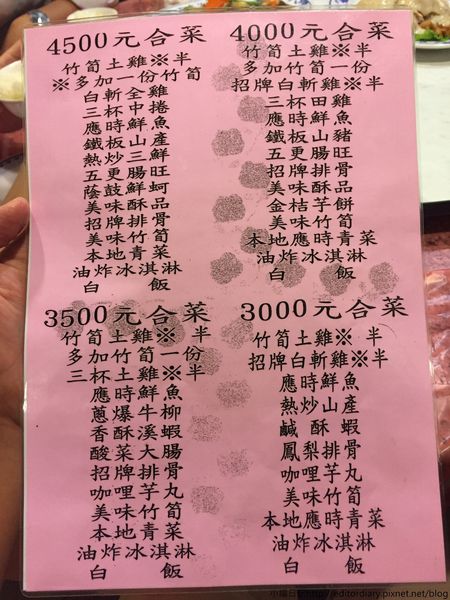 4500元合菜
竹筍土雞※半
※多加一份竹筍
白斬全雞
三杯中捲
應時鮮魚
鐵板山產
熱炒三鮮
五更腸旺
蔭鼓鮮蚵
美味酥品
招牌排骨
美味竹筍
本地青菜
油炸冰淇淋
白 飯
4000元合菜
竹筍土雞※半
多加竹筍一份
招牌白斬雞※半
三杯田雞
應時鮮魚
鐵板山豬
五更腸旺
招牌排骨
美味酥品
金桔芋餅
美味竹筍
本地應時青菜
油炸冰淇淋
白 飯
3500元合菜
竹筍土雞※ 半
多加竹筍一份
三杯土雞※半
應時鮮魚
蔥爆牛柳
香酥溪蝦
酸菜大腸
招牌排骨
咖哩芋丸
美味竹筍
本地青菜
油炸冰淇淋
白 飯
3000元合菜
竹筍土雞※ 半
招牌白斬雞※半
應時鮮魚
熱炒山產
鹹酥蝦
鳳梨排骨
咖哩芋丸
美味竹筍
本地應時青菜
油炸冰淇淋
白 飯
http://editordiary.pixnet.net/blog